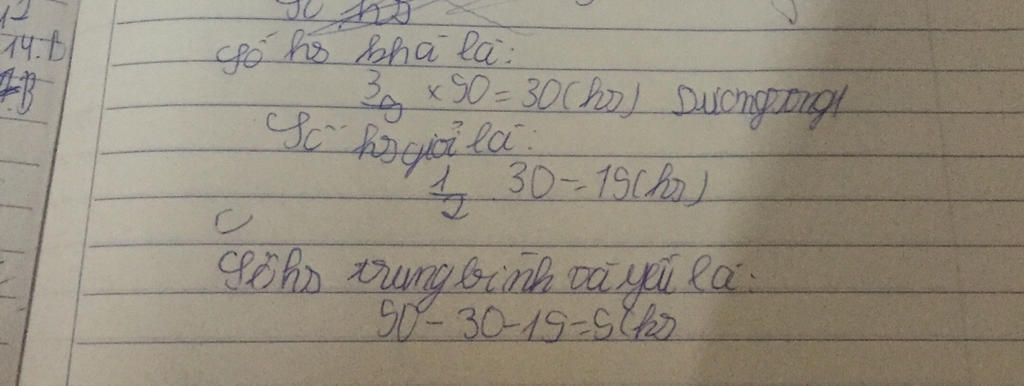 12
14.B
B
Số hs
Số hs khá là:
3/5 × 50 = 30(hs)
Số hs giỏi là:
1/2 30 = 15(hs)
Số hs trung bình và yếu là:
50 - 30 - 15 = 5(hs